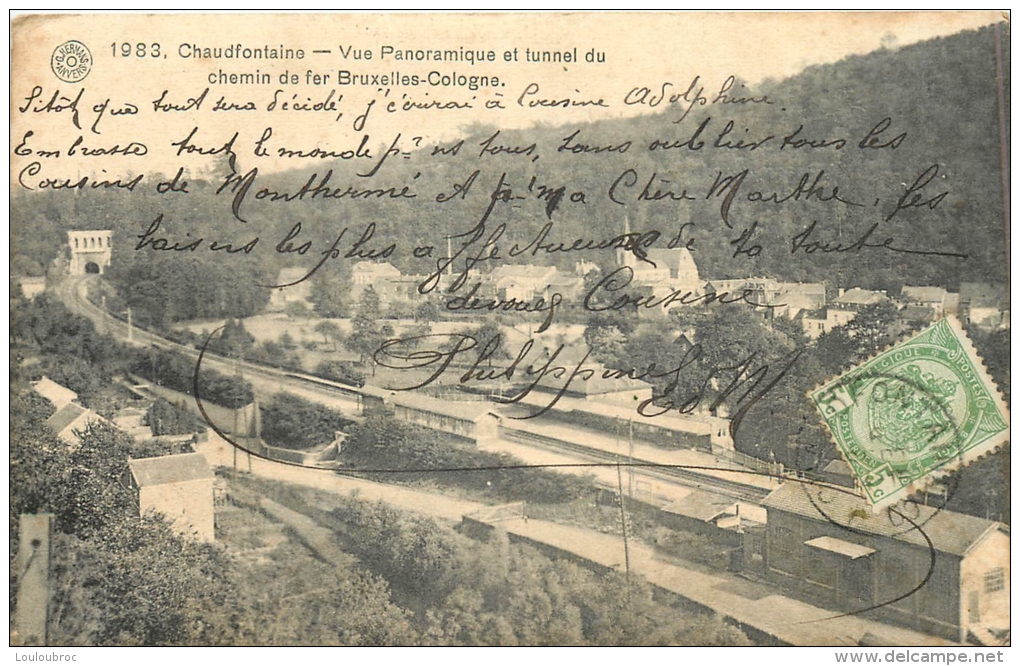 1983, Chaudfontaine — Vue Panoramique et tunnel du
chemin de fer Bruxelles-Cologne.
G. HERMANS ANVERS
Sitôt que tout sera décidé, j'écrirai à Cousine Adolphine.
Embrasse tout le monde pr ns tous, sans oublier tous les
Cousins de Monthermé et pr ma Chère Marthe, les
baisers les plus affectueuse de ta toute
dévouée Cousine
Philippine
BELGIQUE POSTES
5
© Louloubroc
www.delcampe.net